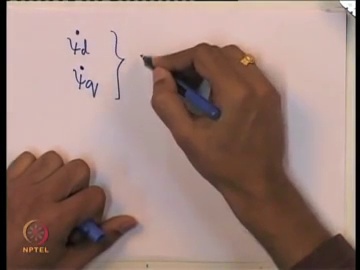 ψ̇d
ψ̇q }
NPTEL